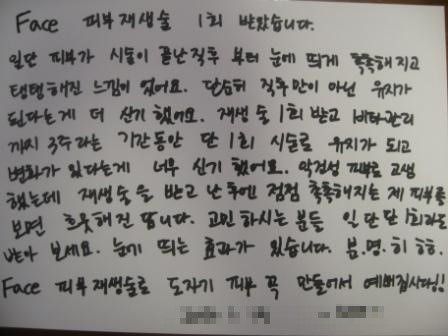 Face 피부재생술 1회 받았습니다.
일단 피부가 시술이 끝난직후 부터 눈에 띄게 촉촉해지고
탱탱해진 느낌이 있어요. 단순히 직후만이 아닌 유지가
된다는게 더 신기했어요. 재생술 1회 받고 비타관리
까지 3주라는 기간동안 단 1회 시술로 유지가 되고
변화가 있다는게 너무 신기했어요. 악건성 피부로 고생
했는데 재생술을 받고 난 후엔 점점 촉촉해지는 제 피부를
보면 흐뭇해진답니다. 고민하시는 분들 일단 단 1회라도
받아 보세요. 눈에 띄는 효과가 있습니다. 분.명.히 ㅎㅎ.
Face 피부재생술로 도자기 피부 꼭 만들어서 예뻐집시다!!